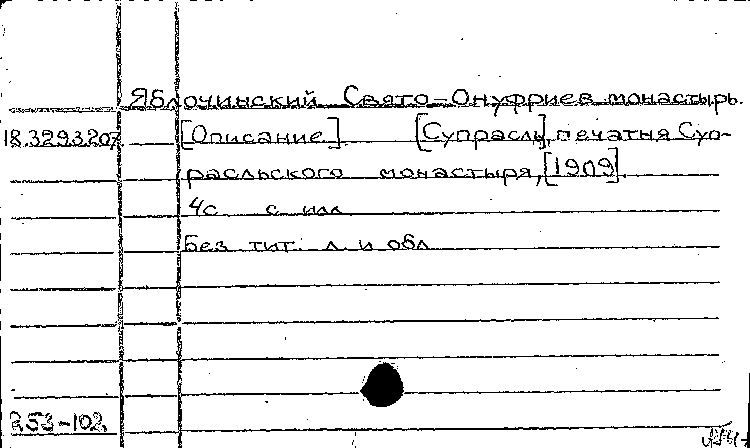 Яблочинский Свято-Онуфриев монастырь.
18.329.3207 [Описание] [Супрасль], печатня Суп-
расльского монастыря, [1909].
4с с илл
Без тит. л и обл
253-102